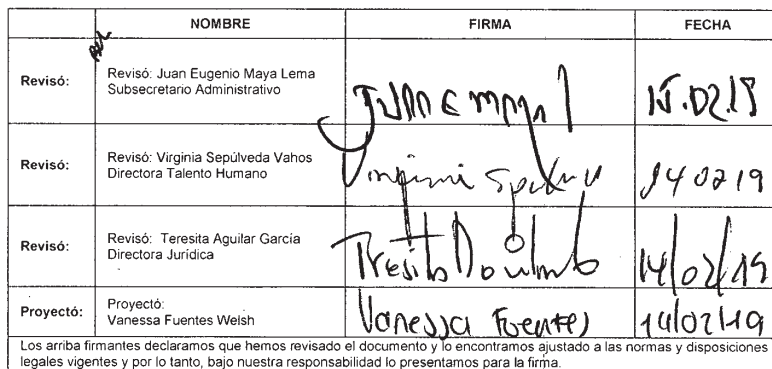 NOMBRE FIRMA FECHA
Revisó: Revisó: Juan Eugenio Maya Lema
Subsecretario Administrativo
Juan E Maya L 15.02.19
Revisó: Revisó: Virginia Sepúlveda Vahos
Directora Talento Humano
Virginia 14 02 19
Revisó: Revisó: Teresita Aguilar García
Directora Jurídica
Teresita 14/02/19
Proyectó: Proyectó:
Vanessa Fuentes Welsh
Vanessa Fuentes 14/02/19
Los arriba firmantes declaramos que hemos revisado el documento y lo encontramos ajustado a las normas y disposiciones
legales vigentes y por lo tanto, bajo nuestra responsabilidad lo presentamos para la firma.